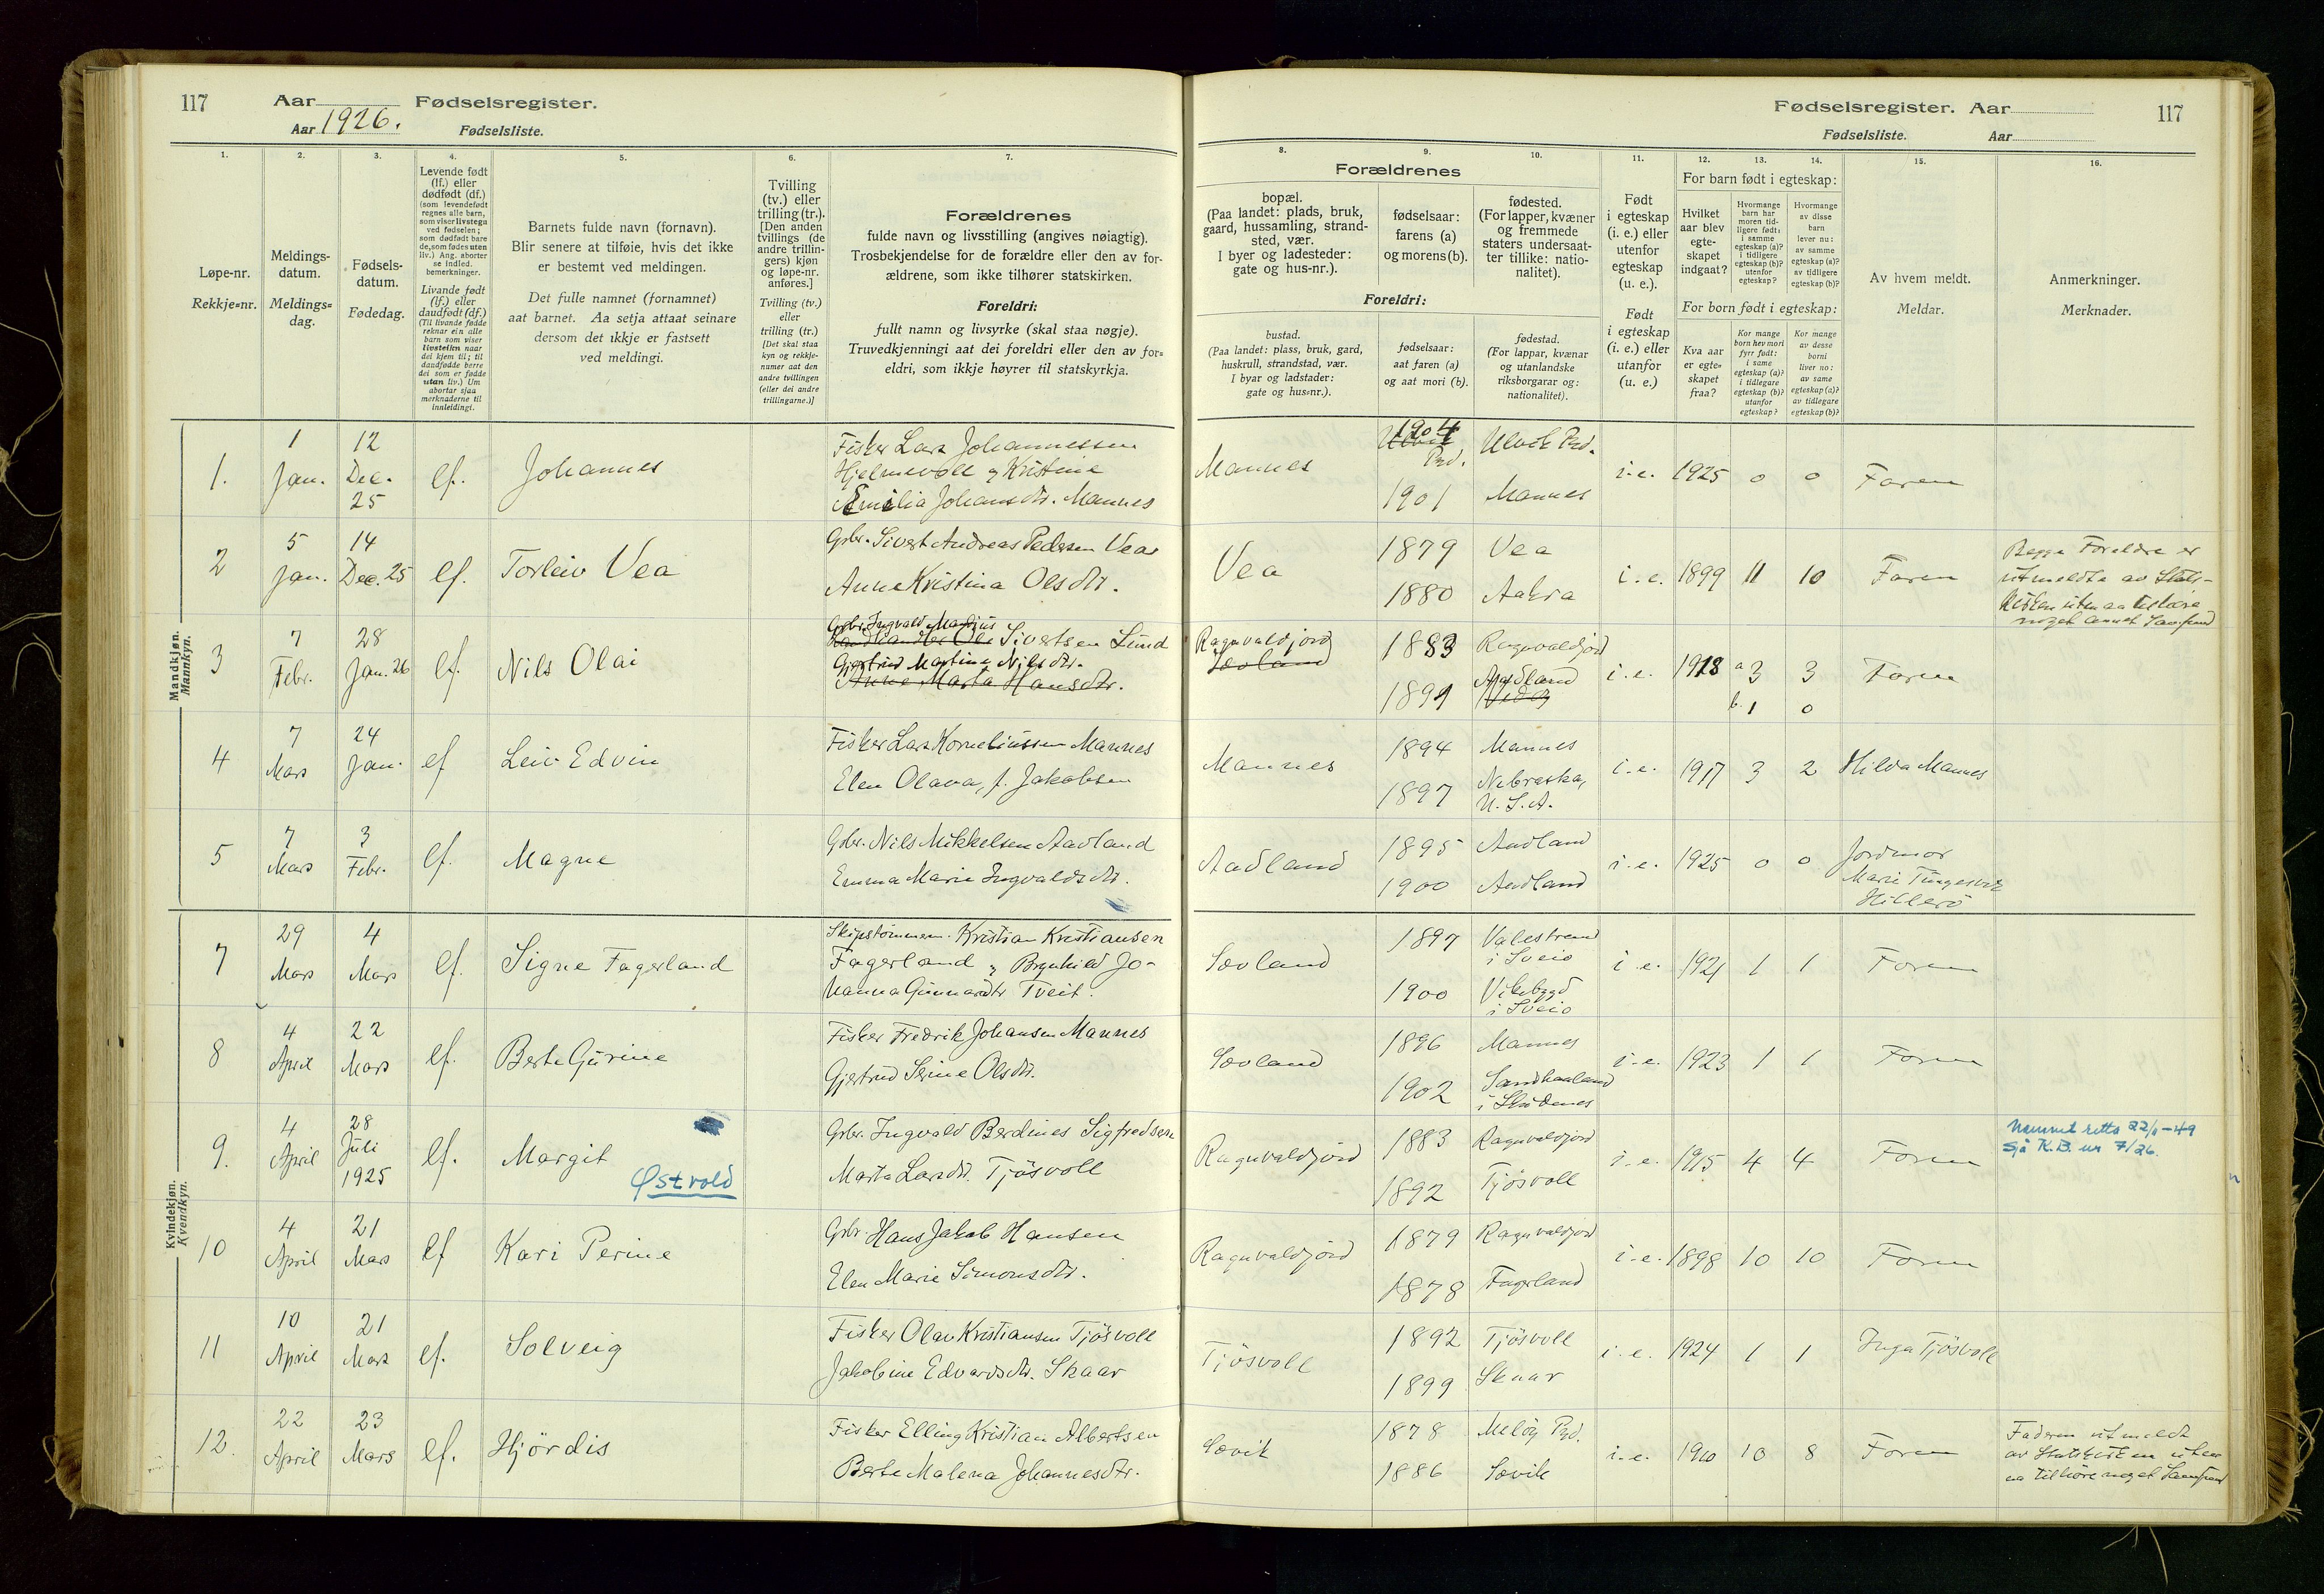 117 Aar Fødselsregister.
Aar 1926. Fødselsliste.
Fødselsregister. Aar 117
Fødselsliste. Aar
1. 2. 3. 4. 5. 6. 7.
Løpe-nr.
Rekkje=nr.
Meldings-
datum.
Meldings=
dag.
Fødsels-
datum.
Fødedag.
Levende født
(lf.) eller
dødfødt (df.)
(som levendefødt
regnes alle barn,
som viser livstegn
ved fødselen;
som dødfødt bare
de, som fødes uten
liv.) Ang. aborter
se indled.
bemerkninger.
Livande født
(lf.) eller
daudfødt (df.)
(Til livande fødde
reknar ein alle
barn som viser
livsteikn naar
dei kjem til; til
daudfødde berre
dei som er fødde
utan liv.) Um
abortar sjaa
merknaderne til
innleidingi.
Barnets fulde navn (fornavn).
Blir senere at tilføie, hvis det ikke
er bestemt ved meldingen.
Det fulle namnet (fornamnet)
aat barnet. Aa setja attaat seinare
dersom det ikkje er fastsett
ved meldingi.
Tvilling
(tv.) eller
trilling (tr.).
[Den anden
tvillings (de
andre trillin-
gers) kjøn
og løpe-nr.
anføres.]
Tvilling (tv.)
eller
trilling (tr.)
[Det skal staa
kyn og rekkje-
numer aat den
andre tvillingen
(eller dei andre
trillingarne.)]
Forældrenes
fulde navn og livsstilling (angives nøiagtig).
Trosbekjendelse for de forældre eller den av for-
ældrene, som ikke tilhører statskirken.
Foreldri:
fullt namn og livsyrke (skal staa nøgje).
Truvedkjenningi aat dei foreldri eller den av for=
eldri, som ikkje høyrer til statskyrkja.
8. 9. 10. 11. 12. 13. 14. 15. 16.
Forældrenes
bopæl.
(Paa landet: plads, bruk,
gaard, hussamling, strand-
sted, vær.
I byer og ladesteder:
gate og hus-nr.).
Foreldri:
bustad.
(Paa landet: plass, bruk, gard,
huskrull, strandstad, vær.
I byar og ladstader:
gate og hus=nr.).
fødselsaar:
farens (a)
og morens (b).
fødselsaar:
aat faren (a)
og aat mori (b).
fødested.
(For lapper, kvæner
og fremmede
staters undersaat-
ter tillike: natio-
nalitet).
fødestad.
(For lappar, kvænar
og utanlandske
riksborgarar og:
nationalitet).
Født
i egteskap
(i. e.) eller
utenfor
egteskap
(u. e.).
Født
i egteskap
(i. e.) eller
utanfor
(u. e.)
For barn født i egteskap:
Hvilket
aar blev
egte-
skapet
indgaat?
Hvormange
barn har
moren tid-
ligere født:
i samme
egteskap (a)?
i tidligere
egteskap (b)?
utenfor
egteskap?
Hvormange
av disse
barn
lever nu:
av samme
egteskap (a)?
av tidligere
egteskap (b)?
For born født i egteskap:
Kva aar
er egte=
skapet
fraa?
Kor mange
born hev mori
fyrr født:
i same
egteskap (a)?
i tidlegare
egteskap (b)?
utanfor
egteskap?
Kor mange
av desse
borni
liver no:
av same
egteskap (a)?
av tidlegare
egteskap (b)?
Av hvem meldt.
Meldar.
Anmerkninger.
Merknader.
Mandkjøn.
Mannkyn.
1. 1 Jan. 12 Dec. 25 lf. Johannes
Fisker Lars Johannessen
Hjelmevoll & Kristine
Emilia Johansdtr. Mannes
Mannes 1904 Ulvik Prd. i. e. 1925 0 0 Faren
1901 Mannes
2 5 Jan. 14 Dec. 25 lf. Torleiv Vea
Grbr. Sivert Andreas Pedersen Vea
Anne Kristina Olsdtr.
Vea 1879 Vea i. e. 1899 11 10 Faren
1880 Aakra
Begge Foreldre er
utmeldte av Stats-
kirken uten aa tilhøre
noget annet Samfund
3 7 Febr. 28 Jan. 26 lf. Nils Olai
Grbr. Ingvald Mardius
Landhandler Ole Sivertsen Lund
Gjertrud Martine Nilsdtr.
Anne Marta Hansdtr.
Ragnvaldjord 1883 Ragnvaldjord i. e. 1918 a 3 3 Faren
Sævland
1891 Aadland b. 1 0
4 7 Mars 24 Jan. lf Leiv Edvin
Fisker Lars Korneliussen Mannes
Elen Olava, f. Jakobsen
Mannes 1894 Mannes i. e. 1917 3 2 Hilda Mannes
1897 Nebraska,
U. S. A.
5 7 Mars 3 Febr. lf. Magne
Grbr. Nils Mikkelsen Aadland
Emma Marie Ingvaldsdtr.
Aadland 1895 Aadland i. e. 1925 0 0 Jordmor
1900 Aadland Marie Tungesvik
Hillerö
Kvindekjøn.
Kvendkyn.
7 29 Mars 4 Mars lf. Signe Fagerland
Skipstömmerm. Kristian Kristiansen
Fagerland & Brynhild Jo-
hanna Gunnardtr Tveit.
Sævland 1897 Valestrand i Sveio i. e. 1921 1 1 Faren
1900 Vikebygd i Sveio
8 4 April 22 Mars lf. Berte Gurine
Fisker Fredrik Johansen Mannes
Gjertrud Serine Olsdtr.
Sævland 1896 Mannes i. e. 1923 1 1 Faren
1902 Sandhaaland
i Skudenes
9. 4 April 28 Juli 1925 lf. Margit
Østvold
Grbr. Ingvald Berdines Sigfredsen
Marta Larsdtr. Tjösvoll
Ragnvaldjord 1883 Ragnvaldjord i. e. 1915 4 4 Faren
1892 Tjösvoll
Namnet retta 22/1-49
Sjå K.B. nr 7/26.
10 4 April 21 Mars lf Kari Perine
Grbr. Hans Jakob Hansen
Elen Marie Simonsdtr.
Ragnvaldjord 1879 Ragnvaldjord i. e. 1898 10 10 Faren
1878 Fagerland
11 10 April 21 Mars lf. Solveig
Fisker Olav Kristiansen Tjösvoll
Jakobine Edvardsdtr. Skaar
Tjösvoll 1892 Tjösvoll i. e. 1924 1 1 Inga Tjösvoll
1899 Skaar
12. 22 April 23 Mars lf. Hjördis
Fisker Elling Kristian Albertsen
Berte Malena Johannesdtr.
Sævik 1878 Melöy Prd. i. e. 1910 10 8 Faren
1886 Sævik
Faderen utmeldt
av Statskirken uten
aa tilhöre noget Samfund